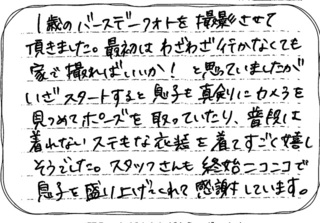 1歳のバースデーフォトを撮影させて
頂きました。最初はわざわざ行かなくても
家で撮ればいいか!と思っていましたが
いざスタートすると息子も真剣にカメラを
見つめてポーズを取っていたり、普段は
着れないステキな衣装を着てすごく嬉し
そうでした。スタッフさんも終始ニコニコで
息子を盛り上げてくれて感謝しています。